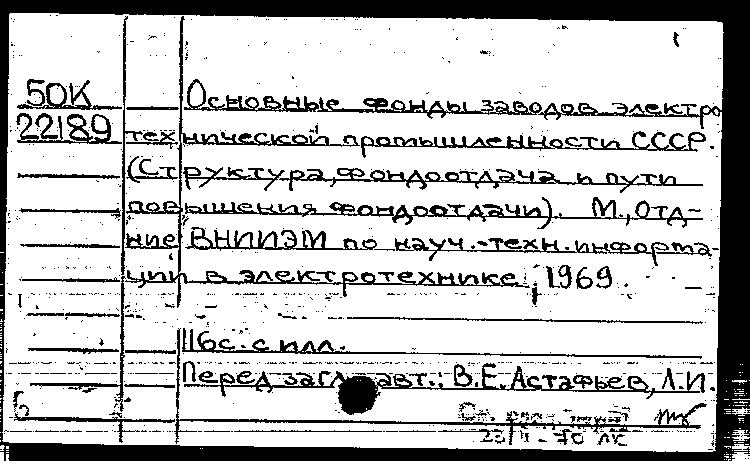 50К Основные фонды заводов электро
22189 технической промышленности СССР.
(Структура, фондоотдача и пути
повышения фондоотдачи). М., Отд-
ние ВНИИЭМ по науч.-техн. информа-
ции в электротехнике, 1969.
116с. с илл.
Перед загл. авт.: В.Е. Астафьев, Л.И.
Б